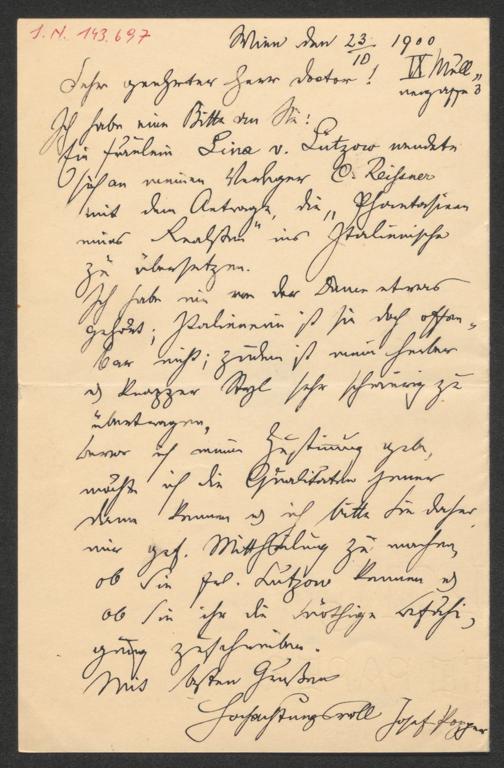 I. N. 143.697
Wien den 23/10 1900
IX Müll„
nergasse 3
Sehr geehrter Herr Doctor!
Ich habe eine Bitte an Sie:
Ein Fräulein Lina v. Lützow wendete
sich an meinen Verleger C. Reißner
mit dem Antrage, die „Phantasieen
eines Realisten" ins Italienische
zu übersetzen.
Ich habe nie von der Dame etwas
gehört; Italienerin ist sie doch offen„
bar nicht; zudem ist mein herber
u knapper Styl sehr schwierig zu
übertragen.
Bevor ich meine Zustimmung gebe,
möchte ich die Qualitäten jener
Dame kennen u ich bitte Sie daher
mir gef. Mittheilung zu machen,
ob Sie Frl. Lützow kennen u
ob Sie ihr die nöthige Befähi„
gung zuschreiben.
Mit besten Grüßen
Hochachtungsvoll Josef Popper